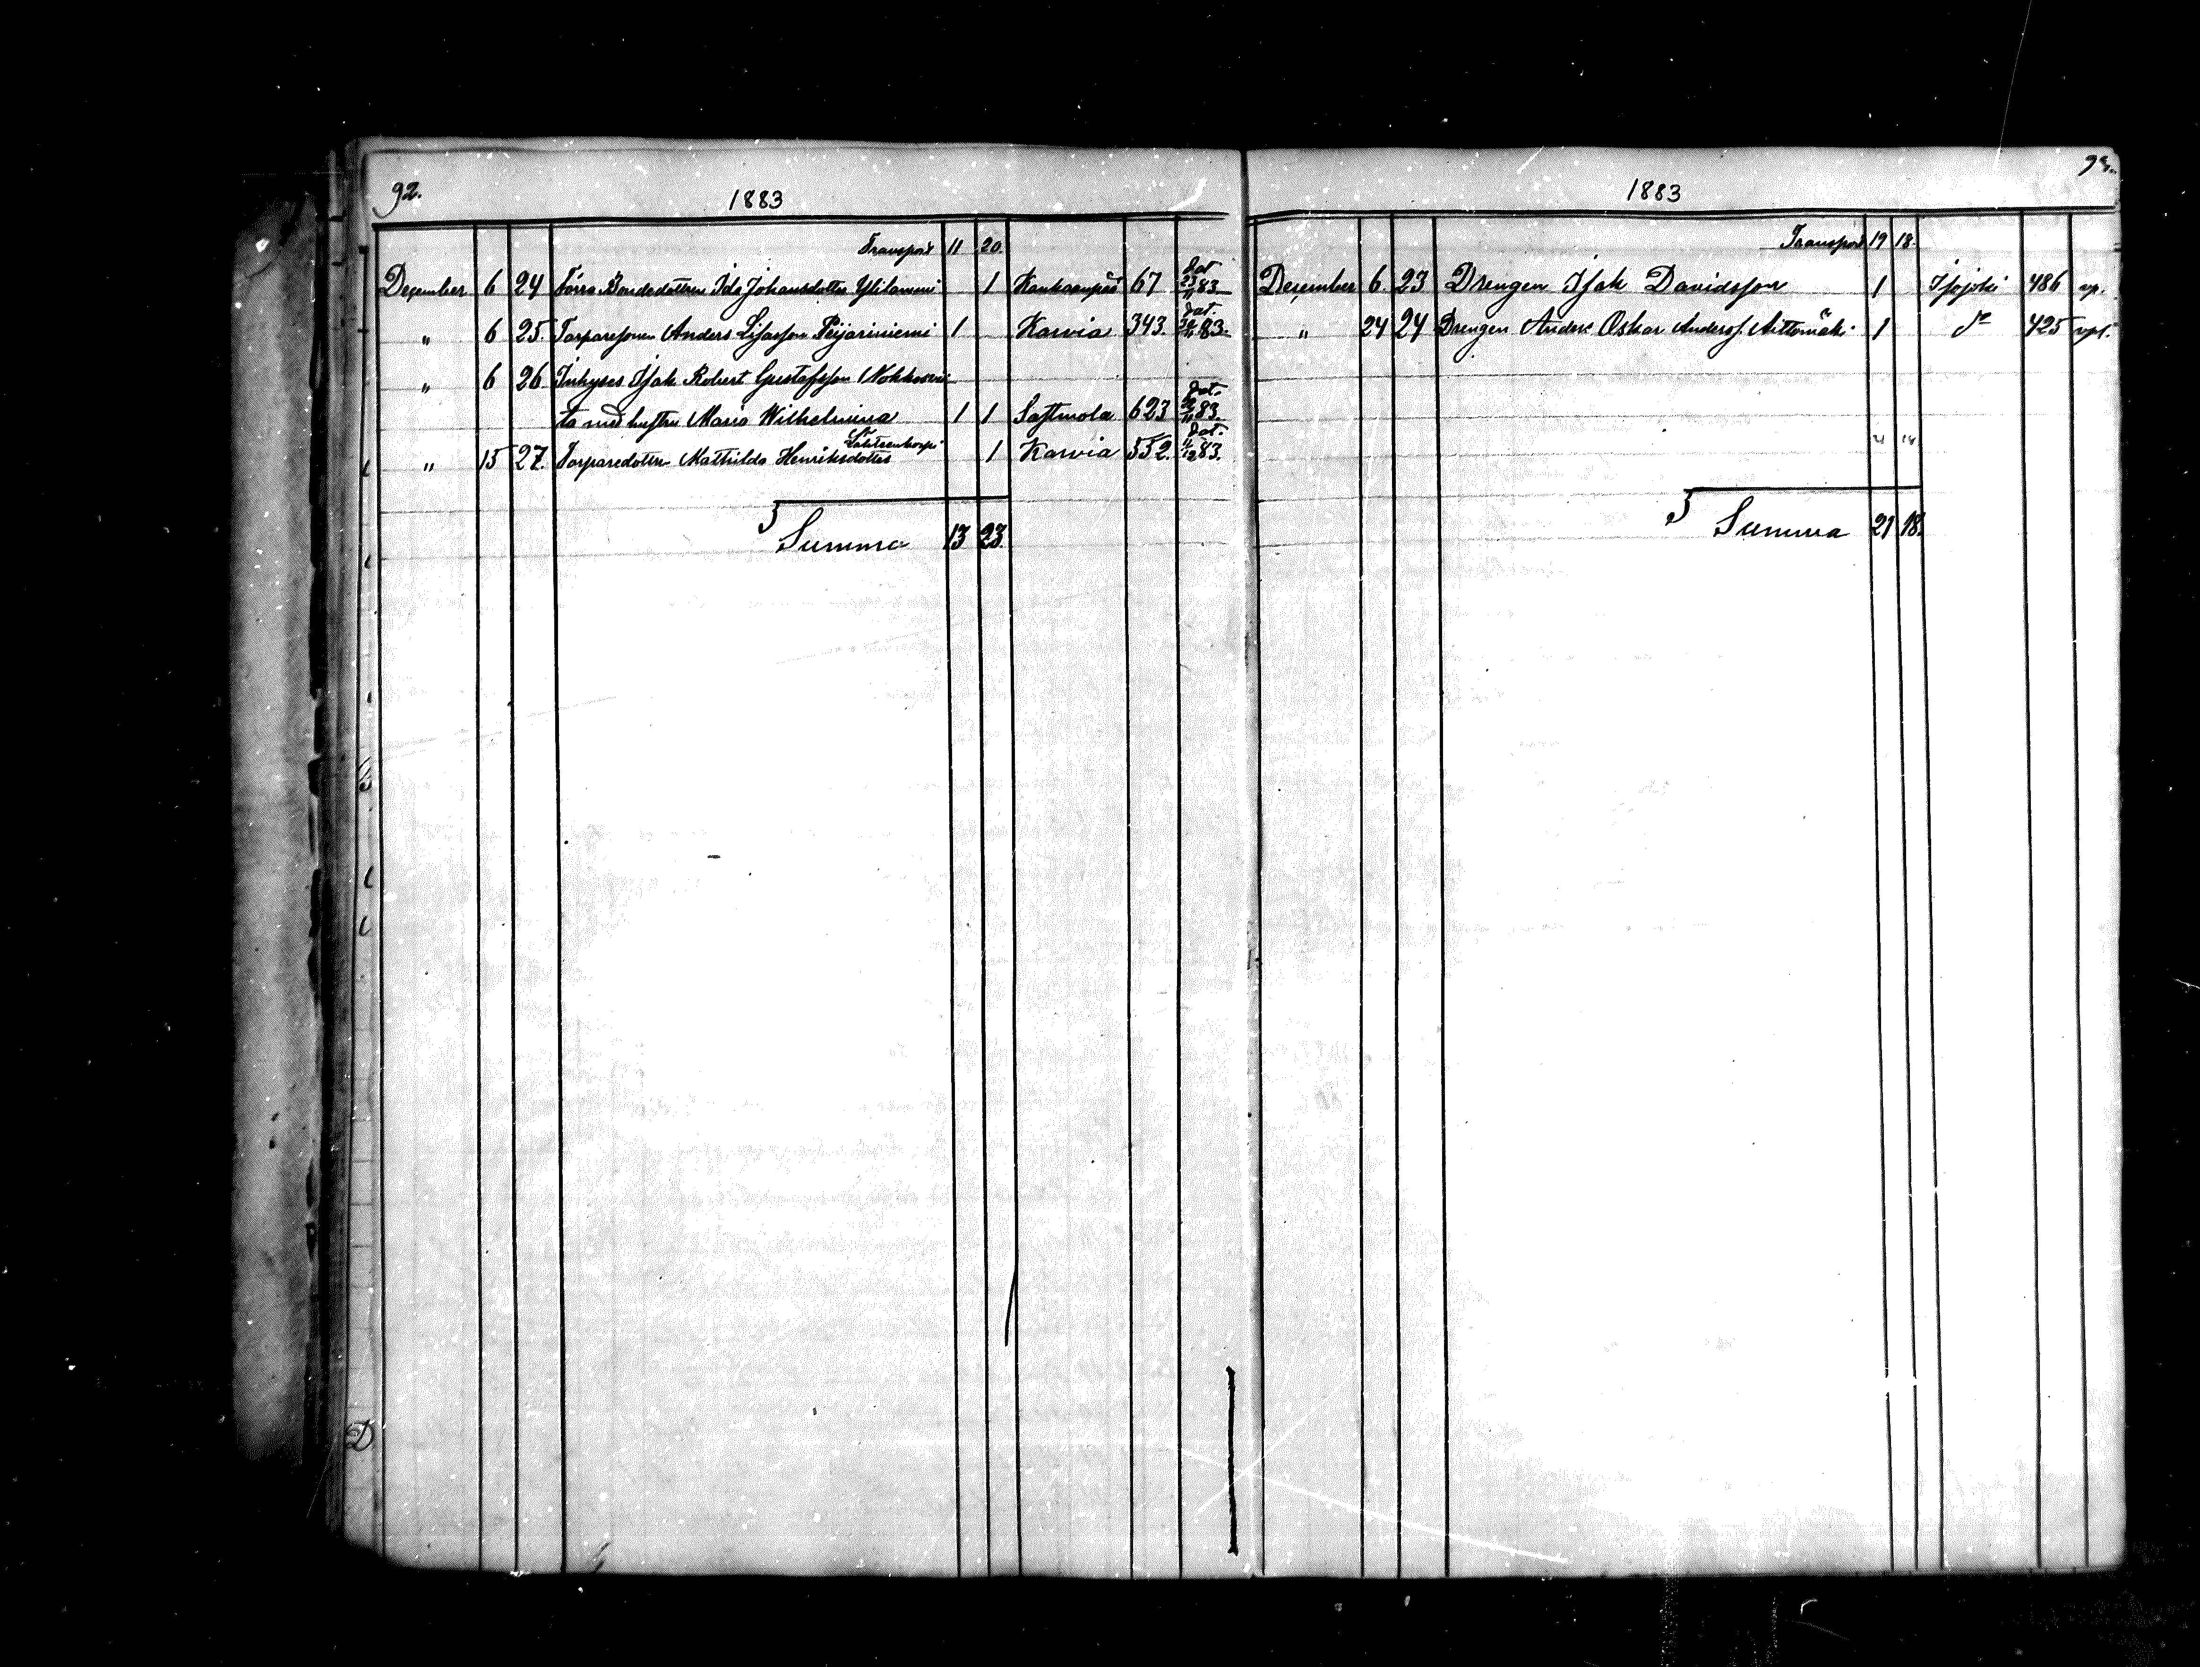 92.
1883
Transport 11 20.
December 6 24 Förra Bondedottren Ida Johansdotter Ylilammi 1 Kankaanpää 67 dat. 83
" 6 25. Torparesonen Anders Lisasson Peijariniemi 1 Karvia 343. dat. 83
" 6 26 Inhyses Isak Robert Gustafsson Nokkosmi
ta med hustru Maria Wilhelmina 1 1 Sastmola 623 dat. 83.
Lähteenkorpi
" 15 27. Torparedottren Mathilda Henriksdotter 1 Karvia 552. dat. 83.
Summa 13 23.
93.
1883
Transport 19 18.
December 6 23 Drengen Isak Davidsson 1 Isojoki 486 vp.
" 24 24 Drengen Anders Oskar Anderss. Aittomäki 1 do 425 vpl.
21 18
Summa 21 18.